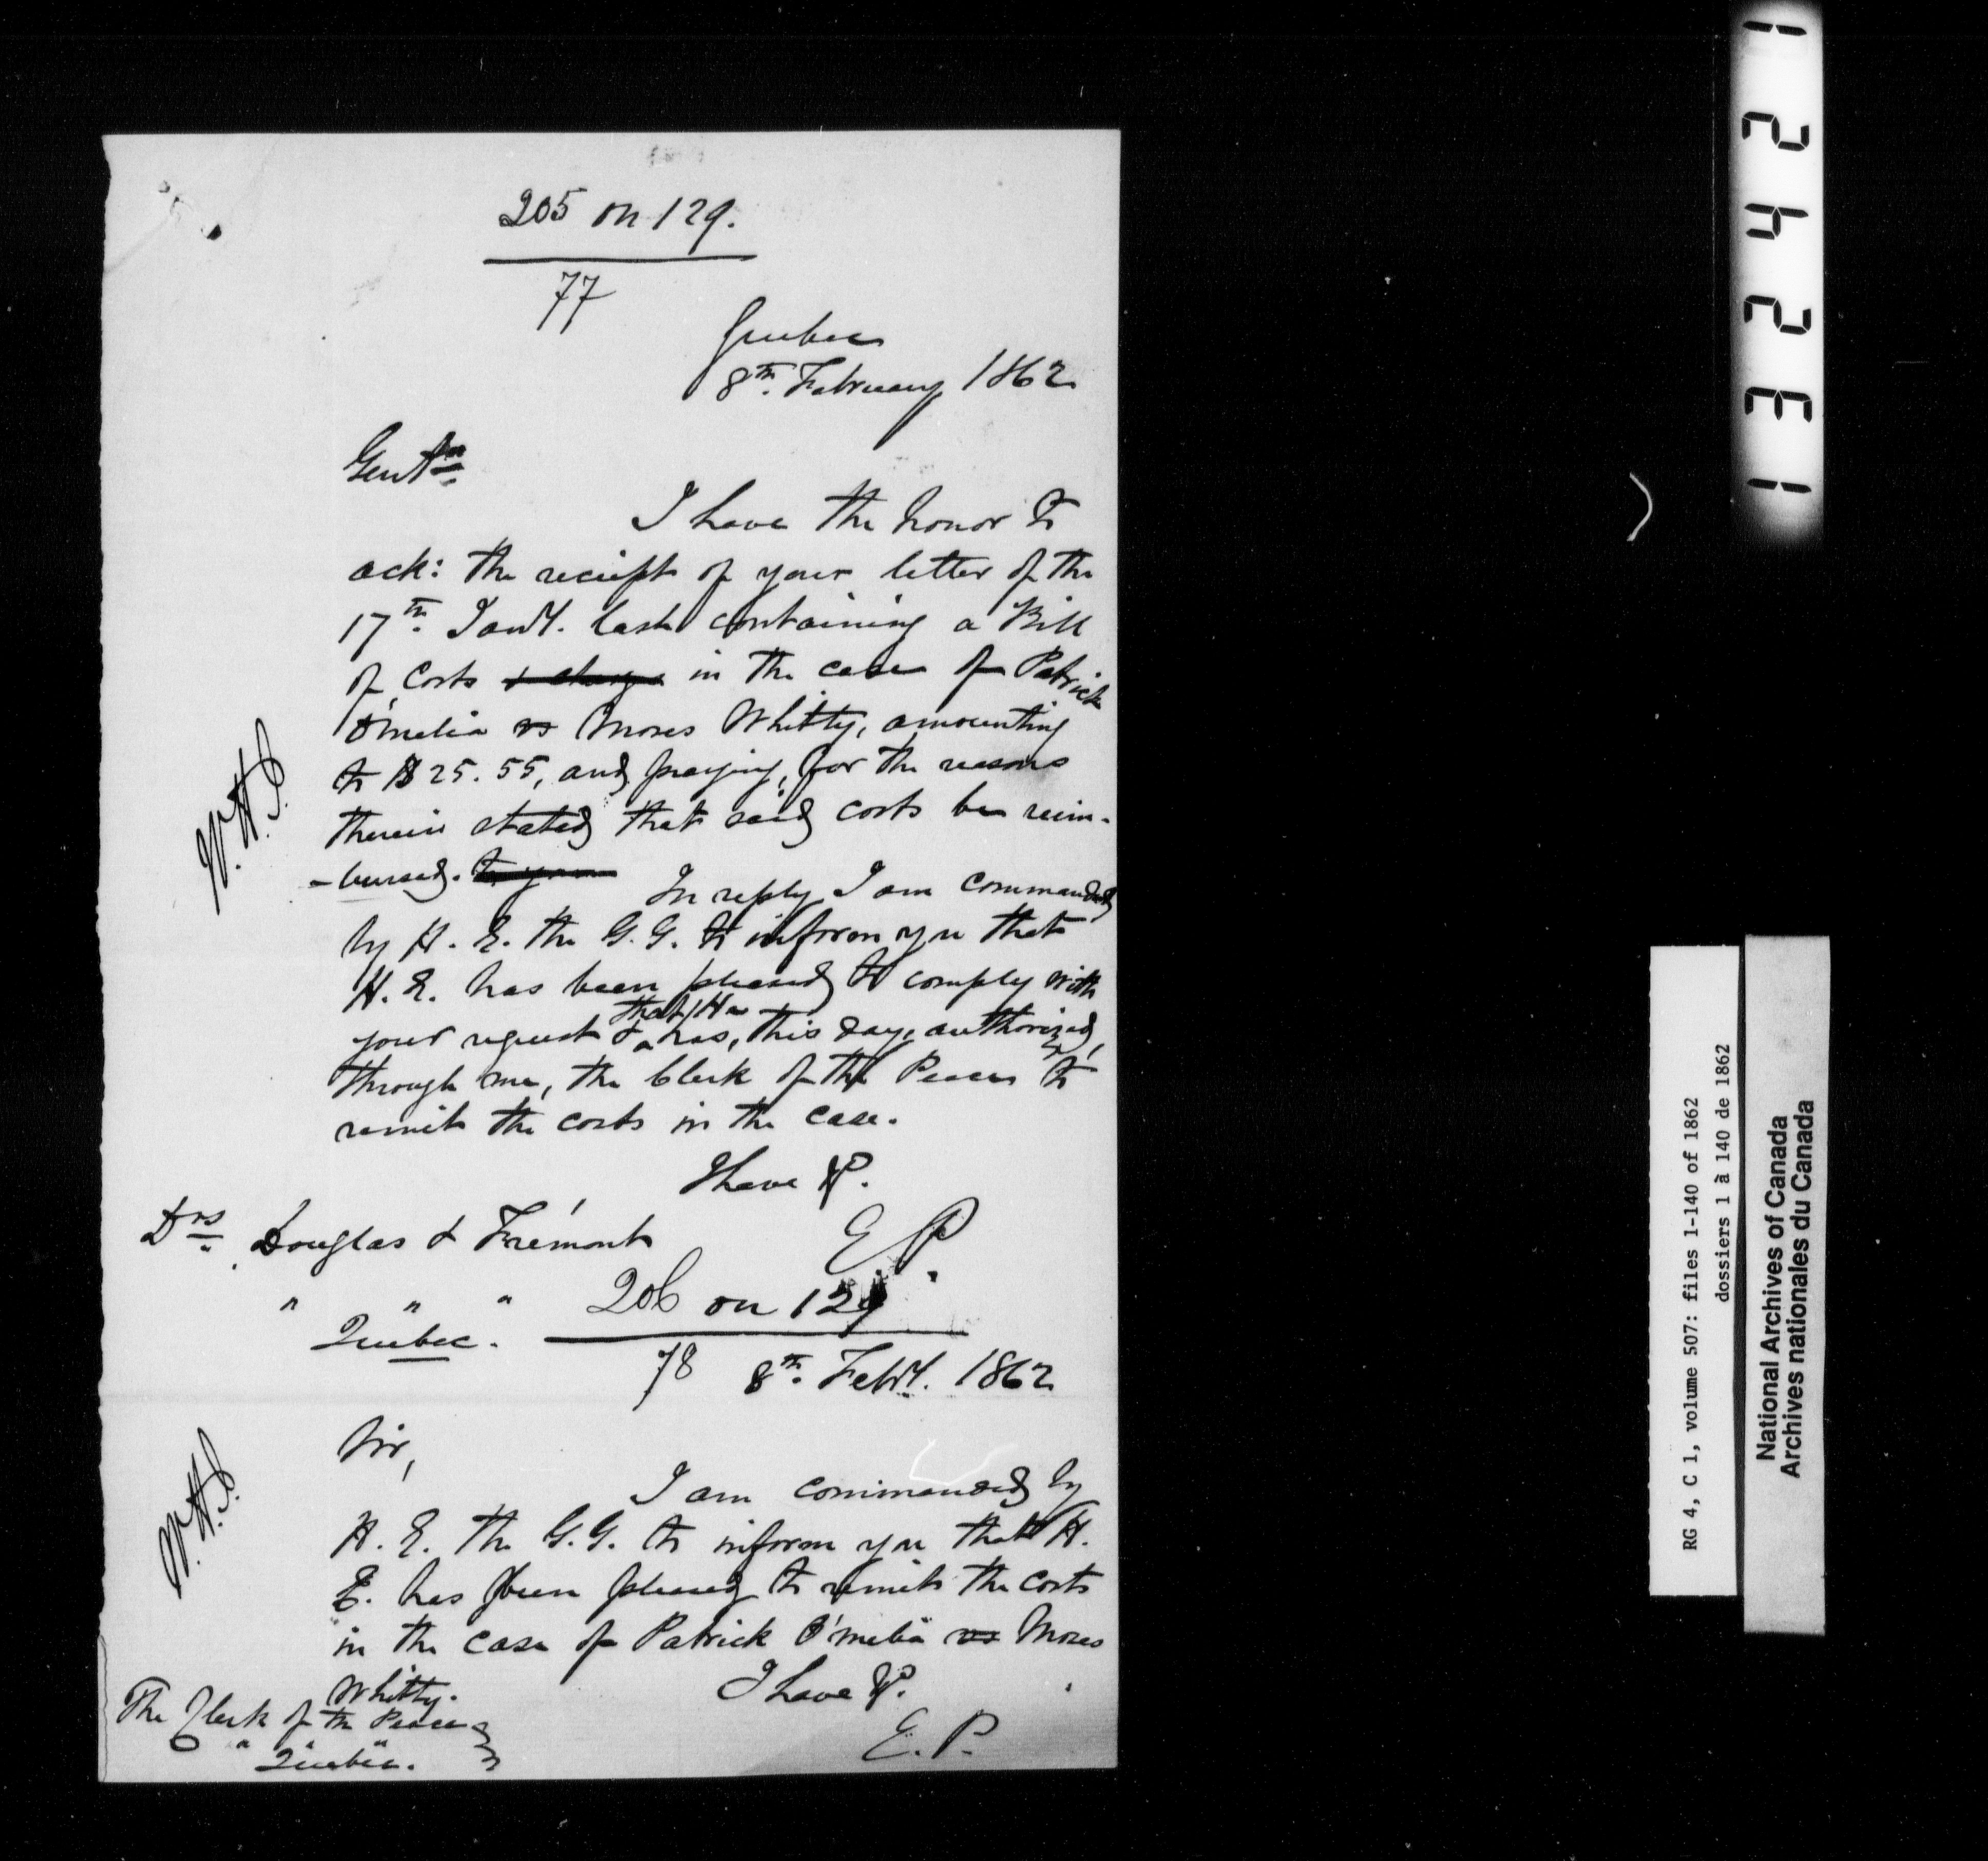 205 on 129.
77
Quebec
8th. February 1862
Gentn
I have the honor to
ack: the reciept of your letter of the
17th. Jany. last containing a Bill
of costs & charge in the case of Patrick
O'melia vs Moses Whitty, amounting
to $25.55, and praying, for the reasons
therein stated that said costs be reim-
-bursed. to you
In reply I am commanded
by H. E. the G. G. to inform you that
H. E. has been pleased to comply with
that He
your request & has, this day, authorized,
through me, the Clerk of the Peace to
remit the costs in the case.
I have &.
E P.
W.H.J.
Drs. Douglas & Frémont
" " "
Quebec.
206 on 129
78
8th. Feby. 1862
Sir,
I am commanded by
H. E. the G. G. to inform you that H.
E. has been pleased to remit the costs
in the case of Patrick O'melia vs Moses
Whitty.
I have &.
E. P.
W.H.J.
The Clerk of the Peace
" "
Quebec.
1 3 2 4 2 1
RG 4, C 1, volume 507: files 1-140 of 1862
dossiers 1 à 140 de 1862
National Archives of Canada
Archives nationales du Canada